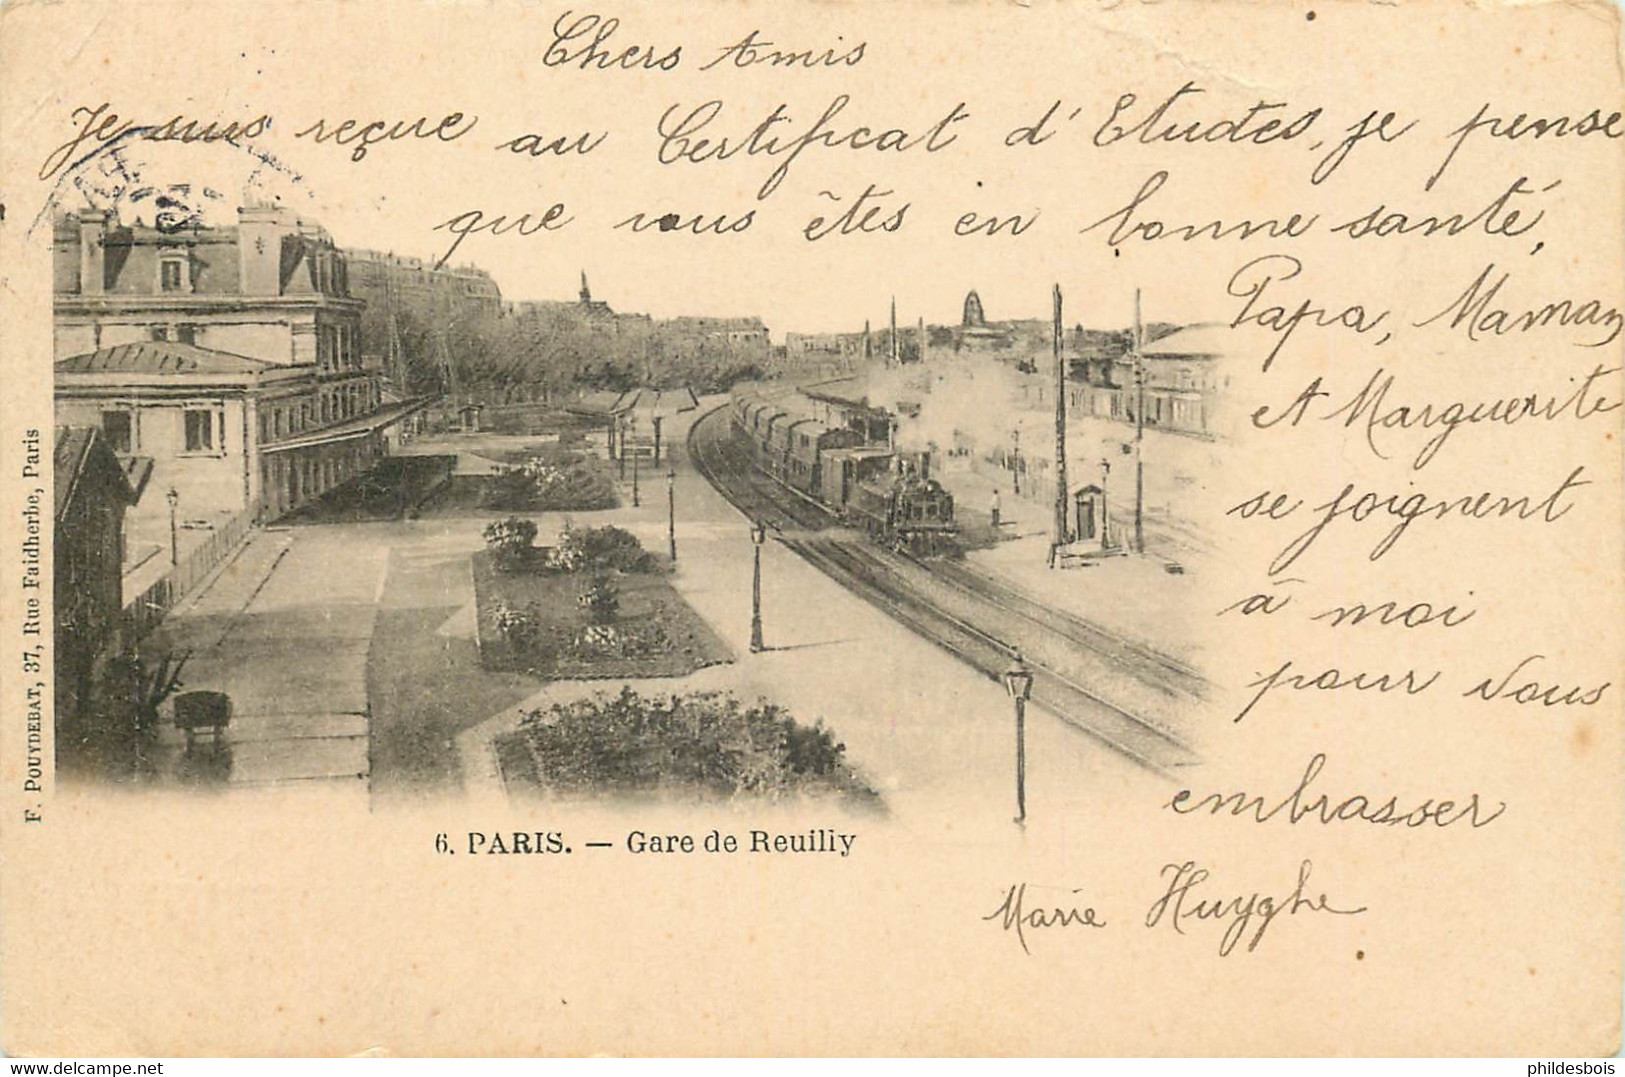 Chers Amis
Je suis reçue au Certificat d'Etudes, je pense
que vous êtes en bonne santé,
Papa, Maman
et Marguerite
se joignent
à moi
pour vous
embrasser
Marie Huyghe
6. PARIS. — Gare de Reuilly
F. POUYDEBAT, 37, Rue Faidherbe, Paris
www.delcampe.net
phildesbois